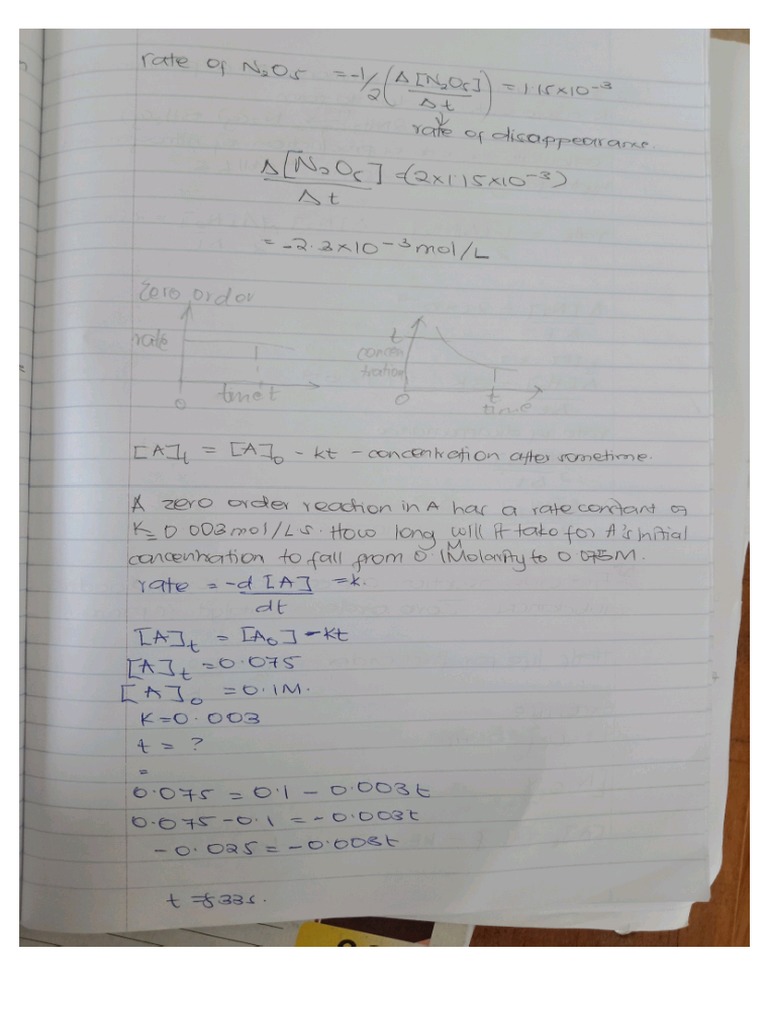 rate of N2O5 = -1/2 (Δ[N2O5]/Δt) = 1.15×10⁻³
rate of disappearance.
Δ[N2O5]/Δt = (2×1.15×10⁻³)
= -2.3×10⁻³ mol/L
Zero order
rate
0
time t
t
concen
tration
0
t
time
[A]t = [A]0 - kt - concentration after sometime.
A zero order reaction in A has a rate constant of
K=0.003mol/Ls. How long will it take for A's initial
concentration to fall from 0.1M Molarity to 0.075M.
rate = -d[A]/dt = k.
[A]t = [A0] - kt
[A]t = 0.075
[A]0 = 0.1M.
K=0.003
t = ?
=
0.075 = 0.1 - 0.003t
0.075-0.1 = -0.003t
-0.025 = -0.003t